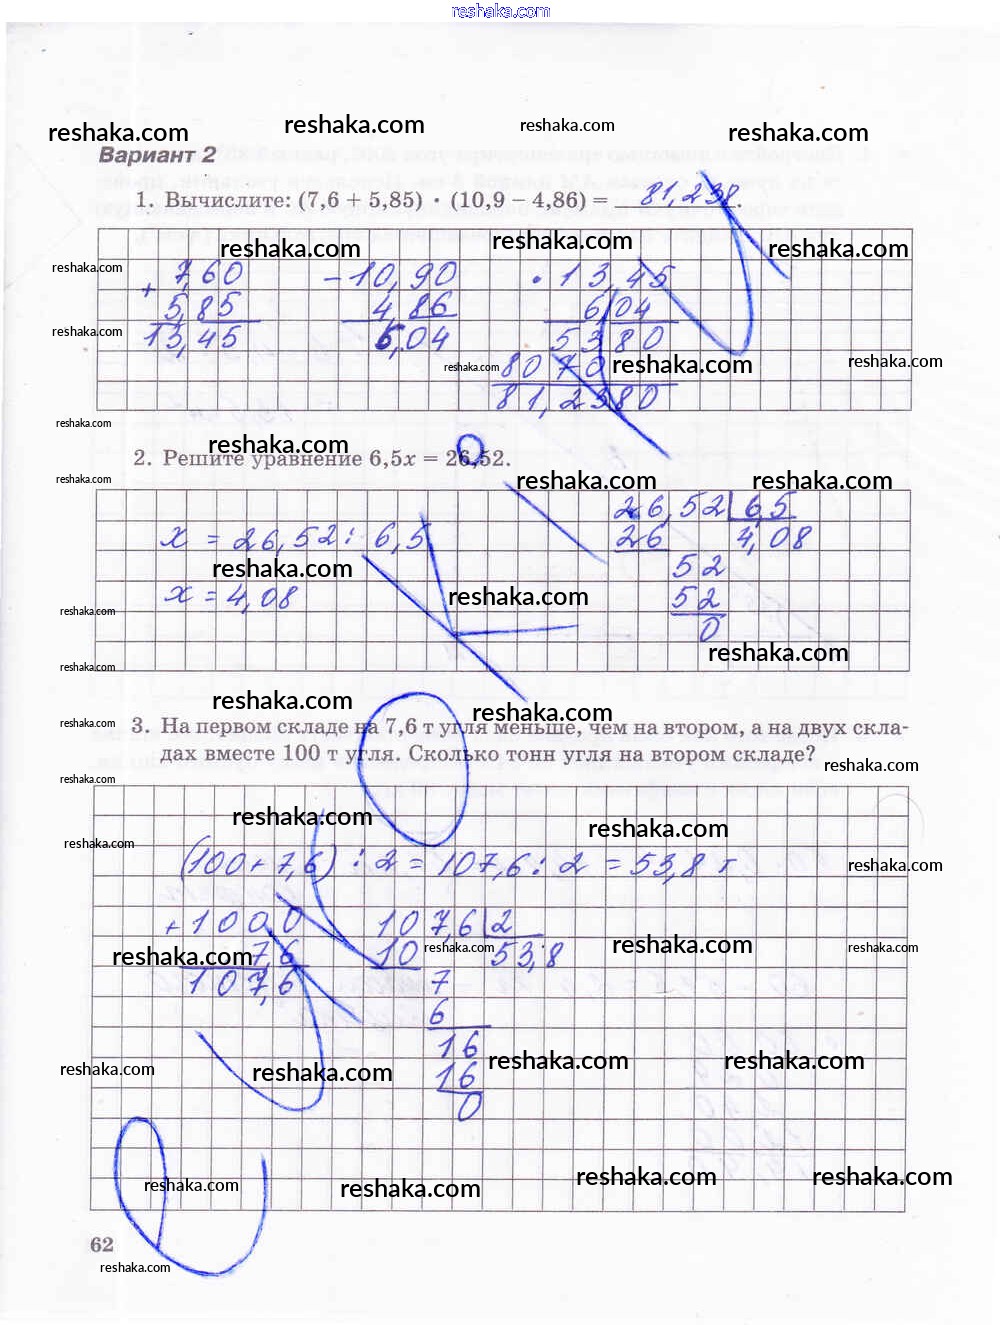 reshaka.com
reshaka.com reshaka.com reshaka.com reshaka.com
Вариант 2
1. Вычислите: (7,6 + 5,85) · (10,9 – 4,86) = 81,238.
reshaka.com reshaka.com reshaka.com
reshaka.com
+ 7,60 – 10,90 · 13,45
5,85 4,86 6,04
reshaka.com
13,45 6,04 5380
reshaka.com reshaka.com reshaka.com
8070
81,2380
reshaka.com
reshaka.com
2. Решите уравнение 6,5x = 26,52.
reshaka.com reshaka.com reshaka.com
26,52 6,5
x = 26,52 : 6,5 26 4,08
reshaka.com 52
x = 4,08 reshaka.com 52
reshaka.com
0
reshaka.com
reshaka.com
reshaka.com reshaka.com
reshaka.com
3. На первом складе на 7,6 т угля меньше, чем на втором, а на двух скла-
дах вместе 100 т угля. Сколько тонн угля на втором складе?
reshaka.com reshaka.com
reshaka.com reshaka.com
reshaka.com
(100+7,6) : 2 = 107,6 : 2 = 53,8 т
reshaka.com
+ 100 0 107,6 2
7,6 10 53,8
reshaka.com reshaka.com reshaka.com reshaka.com
107,6 7
6
16
reshaka.com reshaka.com reshaka.com reshaka.com
16
0
reshaka.com reshaka.com reshaka.com reshaka.com
62
reshaka.com